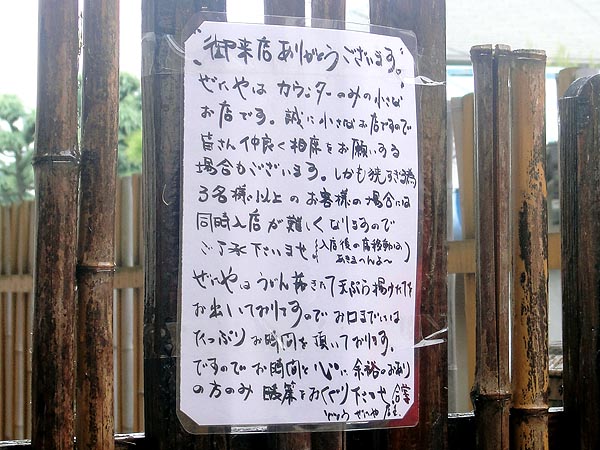 御来店ありがとうございます。
ぜにやはカウンターのみの小さな
お店です。誠に小さなお店ですので
皆さん仲良く相席をお願いする
場合もございます。しかも狭すぎる為
3名様以上のお客様の場合には
同時入店が難しくなりますので
ご了承下さいませ(入店後の席移動は
あきまへんえ〜)
ぜにやはうどん茹きたて天ぷら揚げたてを
お出いておりますのでお口までには
たっぷりお時間を頂いております。
ですのでお時間と心に余裕のおあり
の方のみ暖簾をおくぐり下さいませ
ぜにや 店主